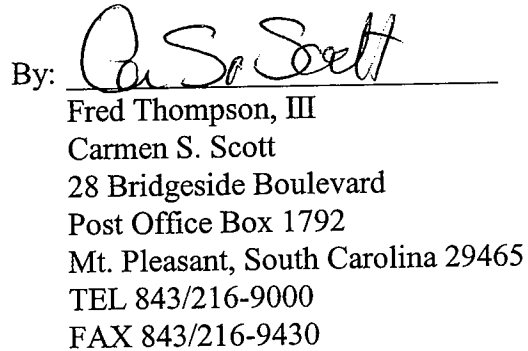 By: Ca S. Scott
Fred Thompson, III
Carmen S. Scott
28 Bridgeside Boulevard
Post Office Box 1792
Mt. Pleasant, South Carolina 29465
TEL 843/216-9000
FAX 843/216-9430